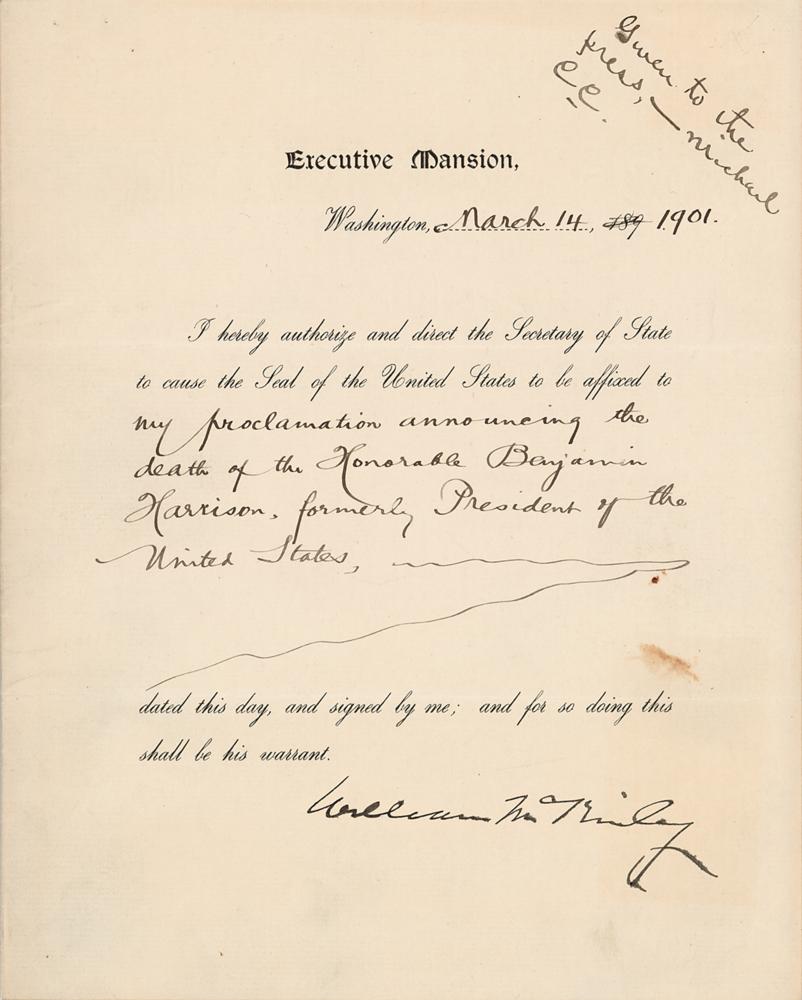 Given to the
press, — Michael
C.C.
Executive Mansion,
Washington, March 14, 189 1901.
I hereby authorize and direct the Secretary of State
to cause the Seal of the United States to be affixed to
my proclamation announcing the
death of the Honorable Benjamin
Harrison, formerly President of the
United States,
dated this day, and signed by me; and for so doing this
shall be his warrant.
William McKinley